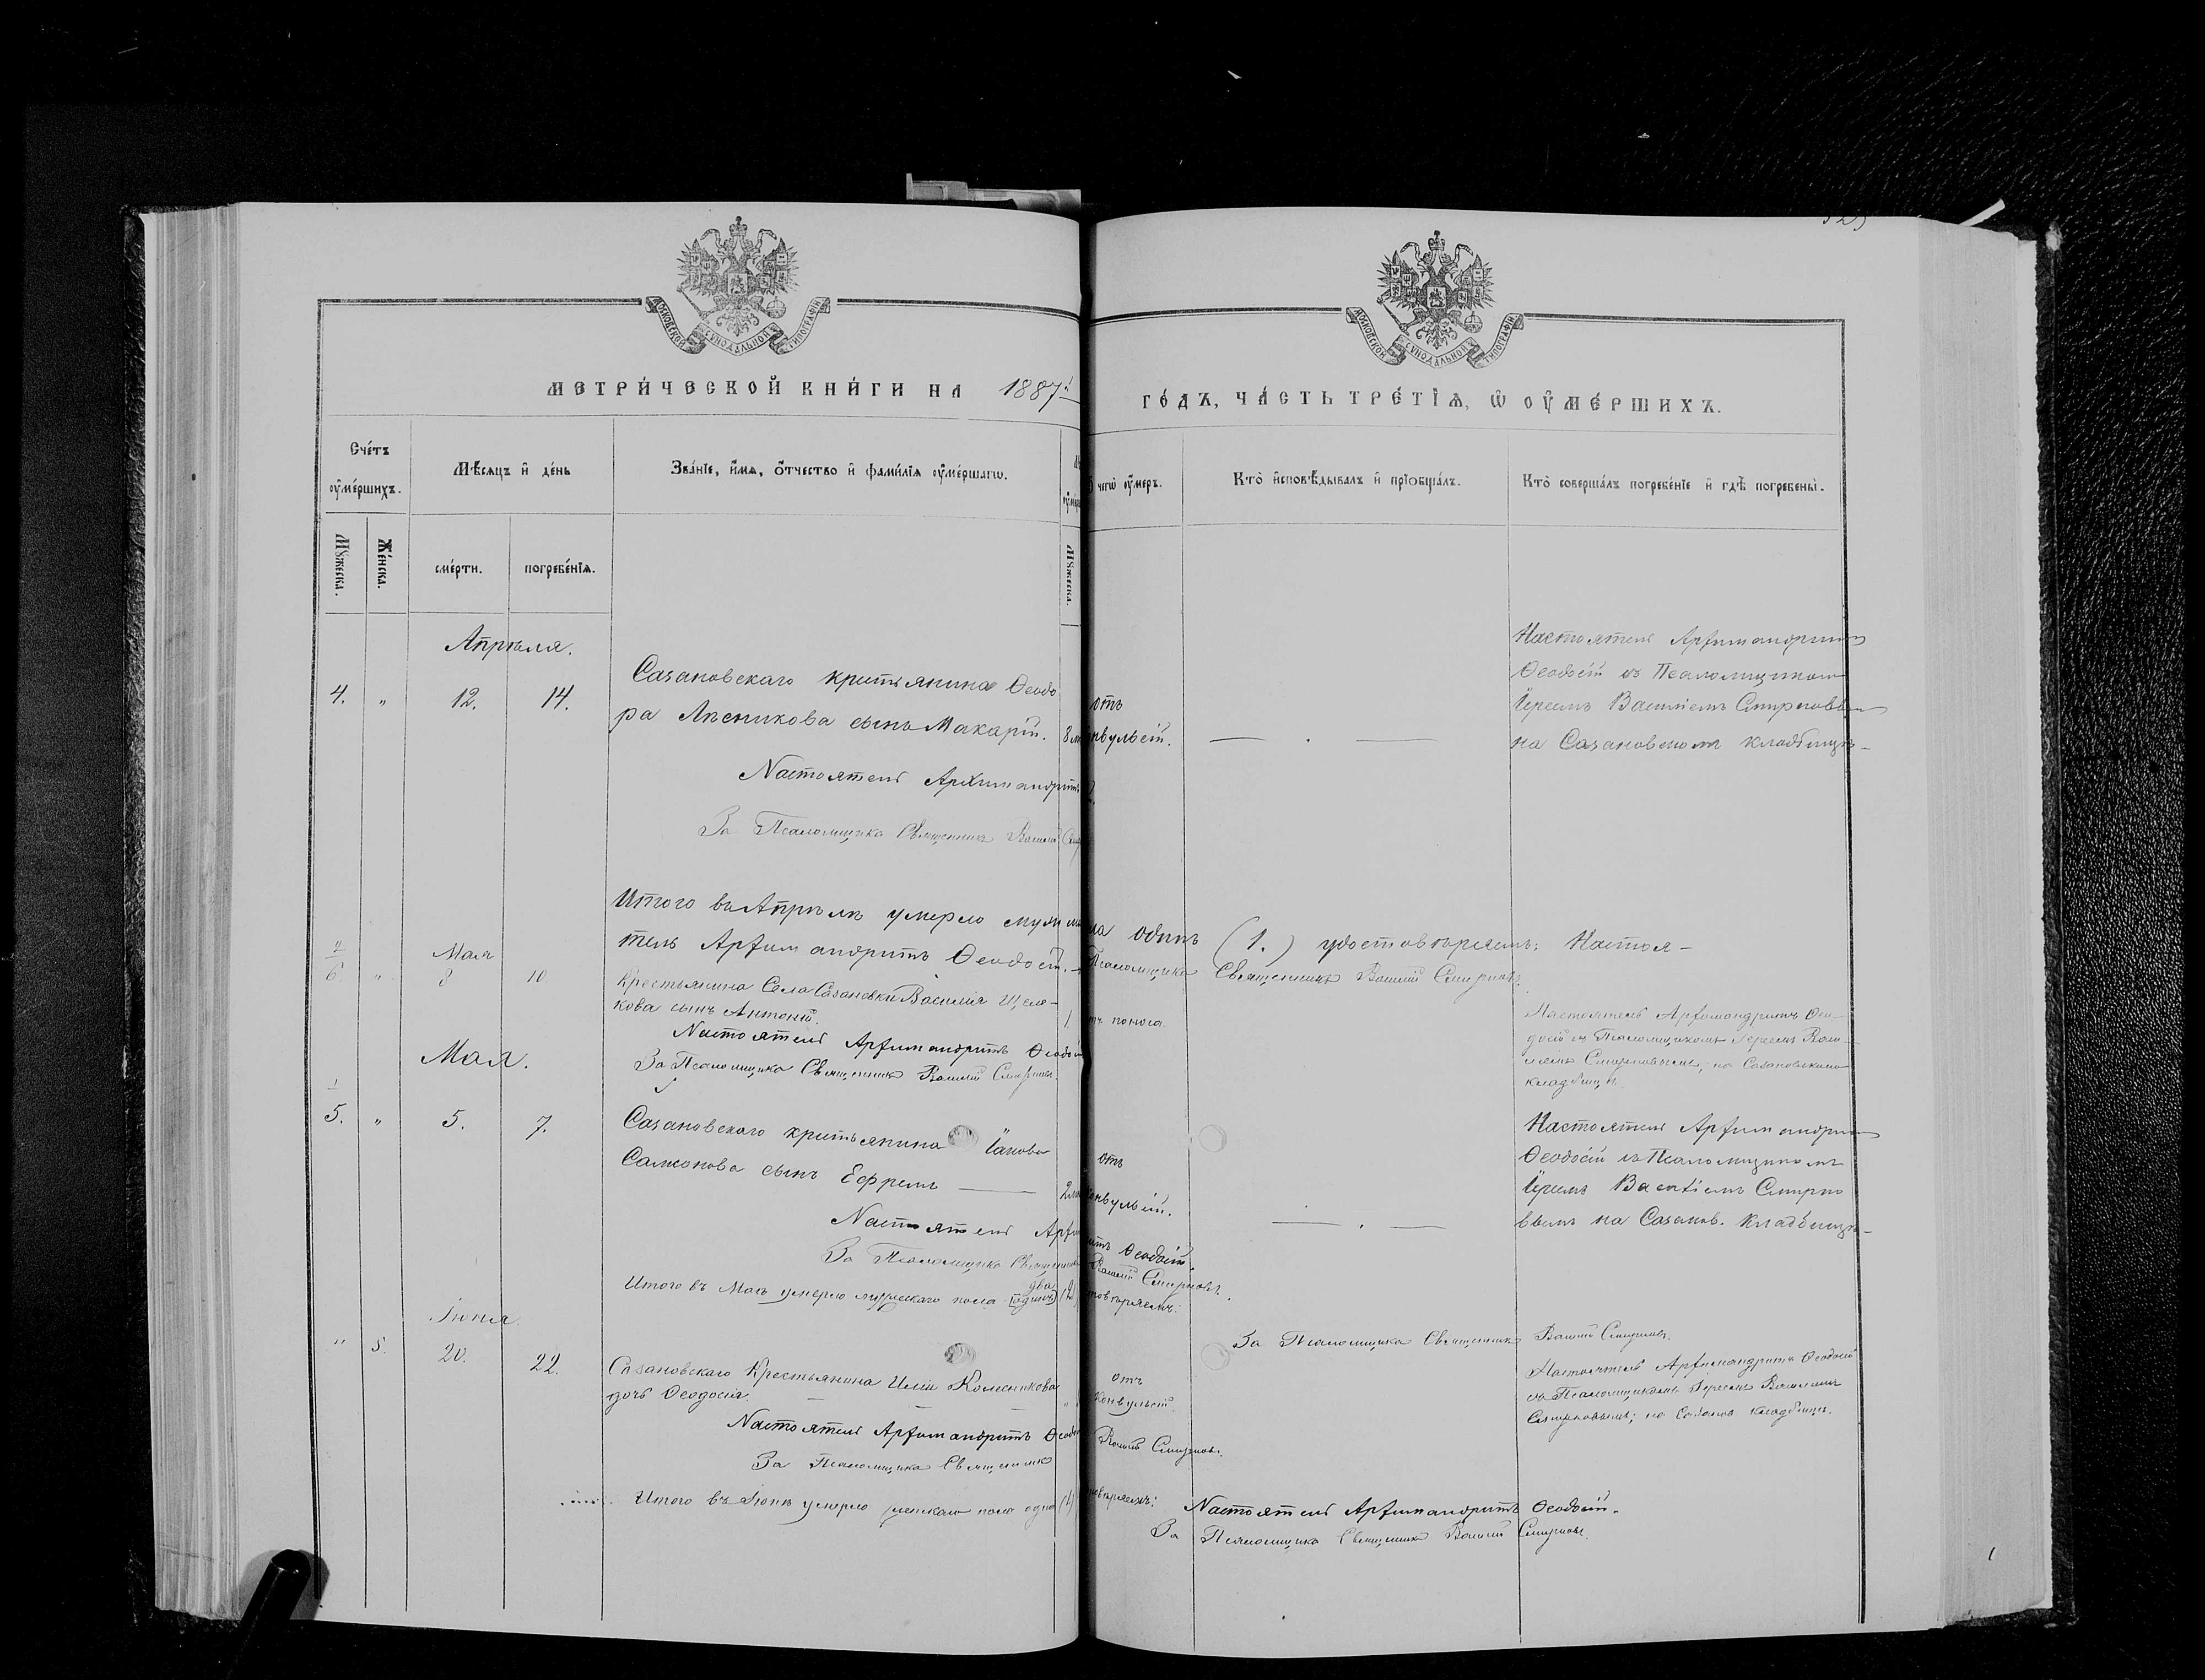 МОСКОВСКОЙ СѴНОДАЛЬНОЙ ТИПОГРАФІИ
МОСКОВСКОЙ СѴНОДАЛЬНОЙ ТИПОГРАФІИ
МЕТРИ́ЧЕСКОЙ КНИ́ГИ НА 1887й
ГО́ДЪ, ЧА́СТЬ ТРЕ́ТІѦ, Ѡ ОУ҆МЕ́РШИХЪ.
Сче́тъ оу҆ме́ршихъ.
Мѣ́сяцъ и҆ де́нь
Зва́нїе, и҆́мѧ, ѻ҆́тчество и҆ фами́лїѧ оу҆ме́ршагѡ.
чегѡ̀ оу҆́меръ.
Кто̀ и҆сповѣ́дывалъ и҆ прїѡбща́лъ.
Кто̀ соверша́лъ погребе́нїе и҆ гдѣ̀ погребены̀.
Мꙋ́жеска.
Же́нска.
сме́рти.
погребе́нїѧ.
Мꙋ́жеска.
Апрѣля.
4. „ 12. 14.
Сазановскаго крестьянина Ѳеодо
ра Лѣсникова сынъ Макарій. 8 м
отъ
конвульсій.
Настоятель Архимандритъ
Ѳеодосій съ Псаломщикомъ
Іереемъ Василіемъ Смирновым
на Сазановскомъ кладбищѣ
Настоятель Архимандритъ
За Псаломщика Священникъ Василій Смир
Итого въ Апрѣлѣ умерло муж
на одинъ (1.) удостовѣряемъ: Настоя-
тель Архимандритъ Ѳеодосій.
Псаломщика Священникъ Василій Смирновъ.
Мая
2
6. „ 8 10.
Крестьянина Села Сазановки Василія Щело-
кова сынъ Антоній.
1.
отъ поноса.
Настоятель Архимандритъ Ѳео-
досій съ Псаломщикомъ Іереемъ Васи-
ліемъ Смирновымъ, на Сазановскомъ
кладбищѣ.
Настоятель Архимандритъ Ѳеодос
За Псаломщика Священникъ Василій Смирновъ.
Мая.
1
5. „ 5. 7.
Сазановскаго крестьянина Іакова
Самсонова сынъ Ефремъ
отъ
конвульсій.
Настоятель Архимандри
Ѳеодосій съ Псаломщикомъ
Іереемъ Василіемъ Смирно
вымъ на Сазанов. кладбищѣ
Настоятель Архи
итъ Ѳеодосій.
За Псаломщика Священникъ
Василій Смирновъ.
Итого въ Маѣ умерло мужескаго пола два [одинъ] (2)
товѣряемъ:
За Псаломщика Священникъ Василій Смирновъ.
Іюня.
„ 5. 20. 22.
Сазановскаго Крестьянина Иліи Колесникова
дочь Ѳеодосія.
отъ
конвульсій
Настоятель Архимандритъ Ѳеодосій
съ Псаломщикомъ Іереемъ Василіемъ
Смирновымъ; на Сазанов кладбищѣ.
Настоятель Архимандритъ Ѳеодо
За Псаломщика Священникъ
Василій Смирновъ.
Итого въ Іюнѣ умерло женскаго пола одна (1)
товѣряемъ:
Настоятель Архимандритъ Ѳеодосій.
За Псаломщика Священникъ Василій Смирновъ.